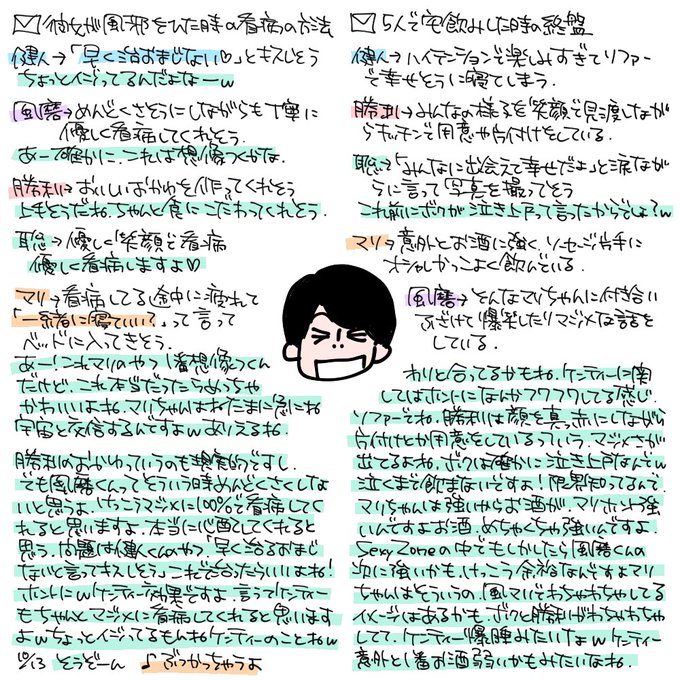 彼女が風邪をひいた時の看病の方法
健人→「早く治るおまじない♡」とキスしそう
ちょっとイジってるんだよなーw
風磨→めんどくさそうにしながらも丁寧に
優しく看病してくれそう.
あー確かに.これは想像つくかな.
勝利→おいしいおかゆを作ってくれそう
上手そうだね.ちゃんと食にこだわってくれそう.
聡→優しく笑顔で看病
優しく看病しますよ♡
マリ→看病してる途中に疲れて
「一緒に寝ていい?」って言って
ベッドに入ってきそう.
あー!これマリのやつ1番想像つくん
だけど.これ本当だったらめっちゃ
かわいいよね.マリちゃんはねたまに急にね
宇宙と交信するんですよwありえるね.
勝利のおかゆっていうのも現実的ですし.
でも風磨くんってこういう時めんどくさくしな
いと思うよ.けっこうマジメに100%で看病してく
れると思いますよ.本当に心配してくれると
思う.問題は健人くんのやつ「早く治るおまじ
ないと言ってキスしそう」これで治ったらいいよね!
ホントにwケンティー効果ですよ.言うてケンティー
もちゃんとマジメに看病してくれると思います
よwちょっとイジってるもんねケンティーのことねw
10/13 どうぞーん ♪ぶつかっちゃうよ
5人で宅飲みした時の終盤
健人→ハイテンションで楽しみすぎてソファー
で幸せそうに寝てしまう.
勝利→みんなの様子を笑顔で見渡しなが
らキッチンで用意や片付けをしている.
聡→「みんなに出会えて幸せだよ」と涙なが
らに言って写真を撮ってそう
これ前にボクが泣き上戸って言ったからでしょ?w
マリ→意外とお酒に強く、ソーセージ片手に
オシャレかっこよく飲んでいる.
風磨→そんなマリちゃんに付き合い
ふざけて爆笑したりマジメな話を
している.
わりと合ってるかもね.ケンティーに関
してはホントになんかフワフワしてる感じ.
ソファーでね.勝利は顔を真っ赤にしながら
片付けとか用意をしているっていう.マジメさが
出てるよね.ボクは確かに泣き上戸なんでw
泣くまで飲まないですよ!限界知ってるんで.
マリちゃんは強いからお酒が.マリホント強
いんですよお酒.めちゃくちゃ強いんですよ.
Sexy Zoneの中でもしかしたら風磨くんの
次に強いかも.けっこう余裕なんですよマリ
ちゃんは.そういうの.風マリでわちゃわちゃしてる
イメージはあるかも.ボクと勝利がわちゃわちゃ
してて.ケンティー爆睡みたいなw ケンティー
意外と1番お酒弱いかもみたいなね.